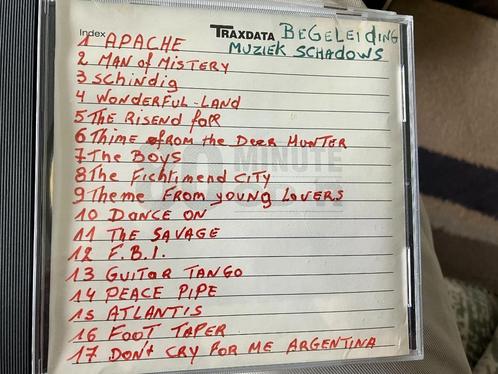 Index TRAXDATA BEGELEIDING
MUZIEK SCHADOWS
1 APACHE
2 MAN of MISTERY
3 SCHINDIG
4 WONDERFUL-LAND
5 THE RISEND fall
6 Thime from the DEER HUNTER
7 The BOYS
8 The FICHTIMEND CITY
9 Theme FROM YOUNG LOVERS
10 DANCE ON
11 THE SAVAGE
12 F.B.I.
13 GUITOR TANGO
14 PEACE PIPE
15 ATLANTIS
16 FOOT TAPER
17 DON't CRY FOR ME ARGENTINA
MINUTE